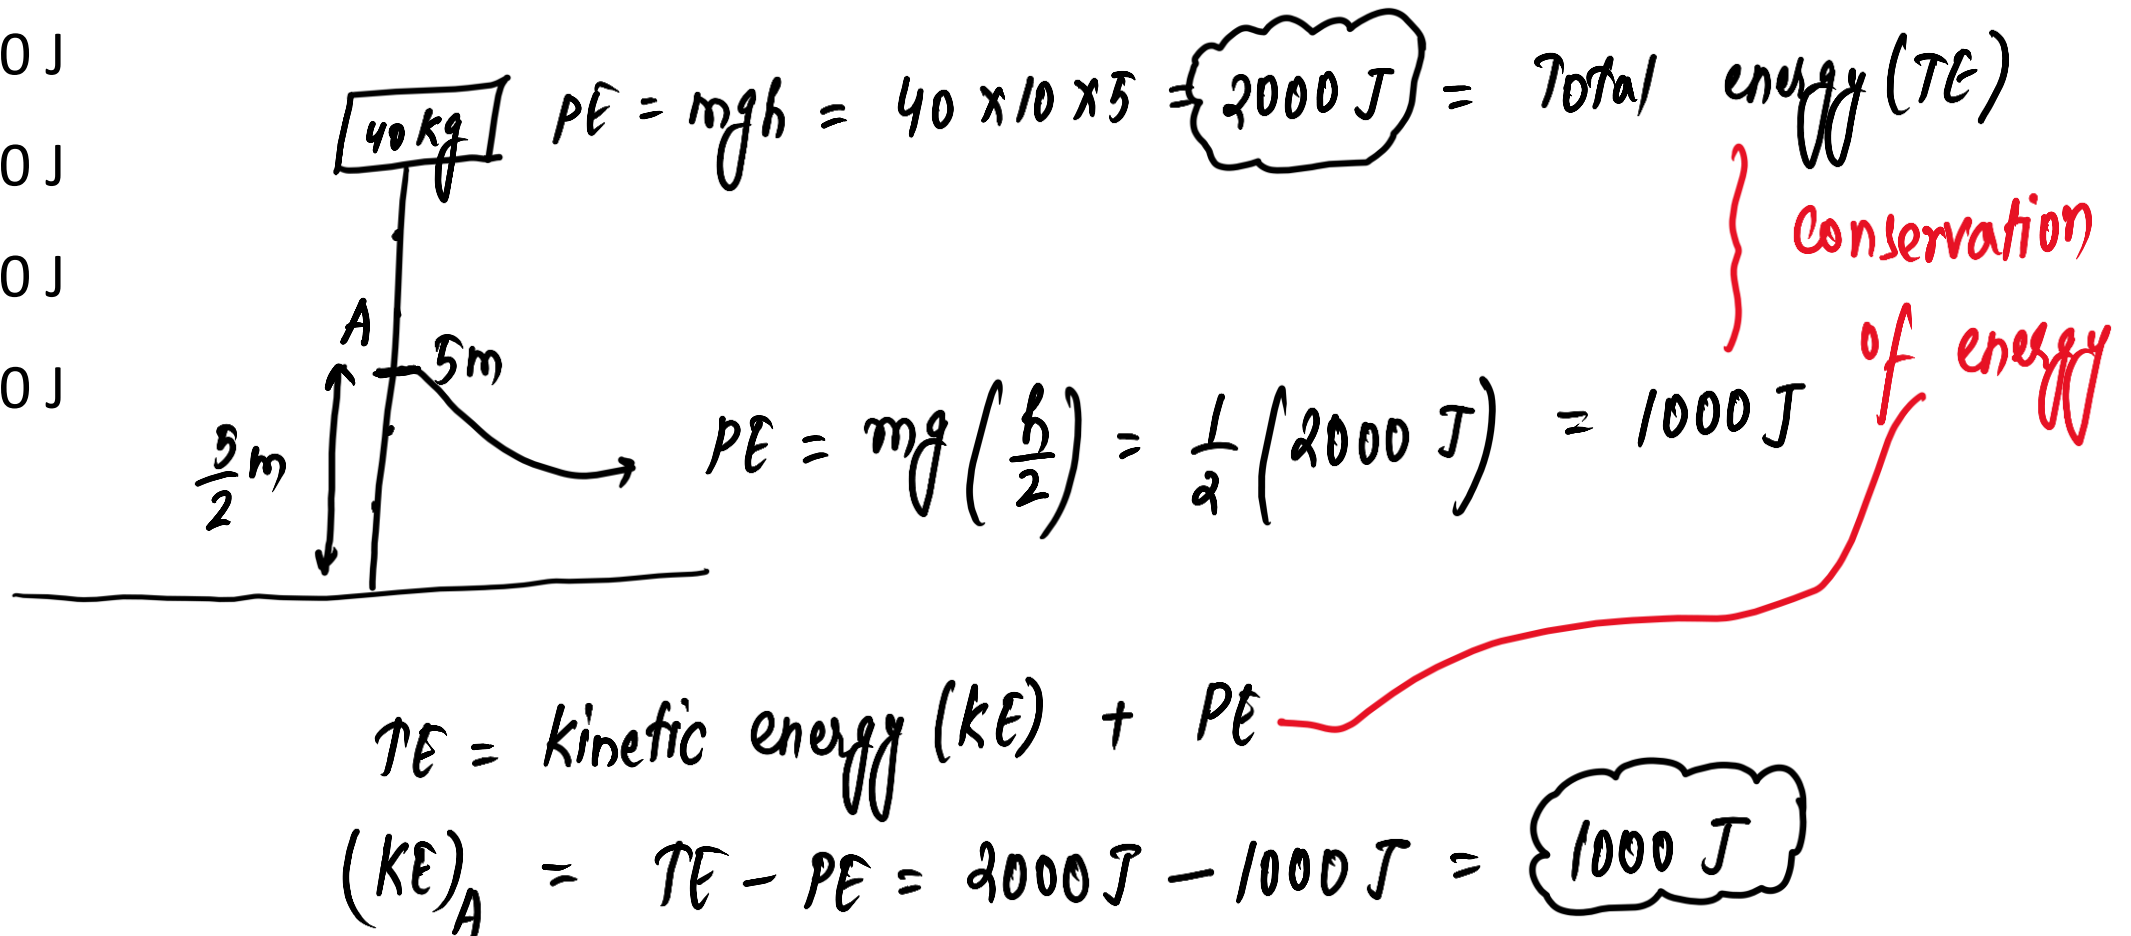 0 J
40 kg PE = mgh = 40 × 10 × 5 = 2000 J = Total energy (TE)
0 J
conservation
of energy
0 J
A
5m
0 J
5/2 m
PE = mg (h/2) = 1/2 (2000 J) = 1000 J
TE = Kinetic energy (KE) + PE
(KE)A = TE - PE = 2000 J - 1000 J = 1000 J